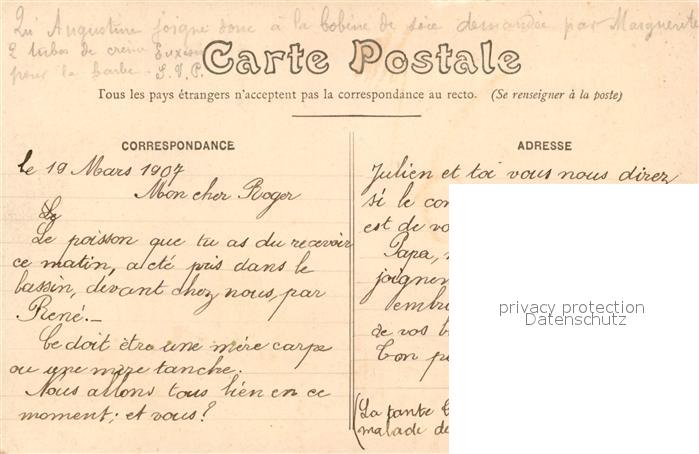 Qu'Augustine joigne donc à la bobine de soie demandée par Marguerite
2 tubes de crème
pour la barbe - S.V.P.
Carte Postale
Tous les pays étrangers n'acceptent pas la correspondance au recto. (Se renseigner à la poste)
CORRESPONDANCE
le 19 Mars 1907
Mon cher Roger
Le
Le poisson que tu as du recevoir
ce matin, a été pris dans le
bassin, devant chez nous, par
René.-
Ce doit être une mère carpe
ou une mère tanche.
Nous allons tous bien en ce
moment; et vous?
ADRESSE
Julien et toi vous nous direz
si le con
est de vo
Papa,
joignen
embr
de vos b
Ton p
(La tante
malade de
privacy protection
Datenschutz